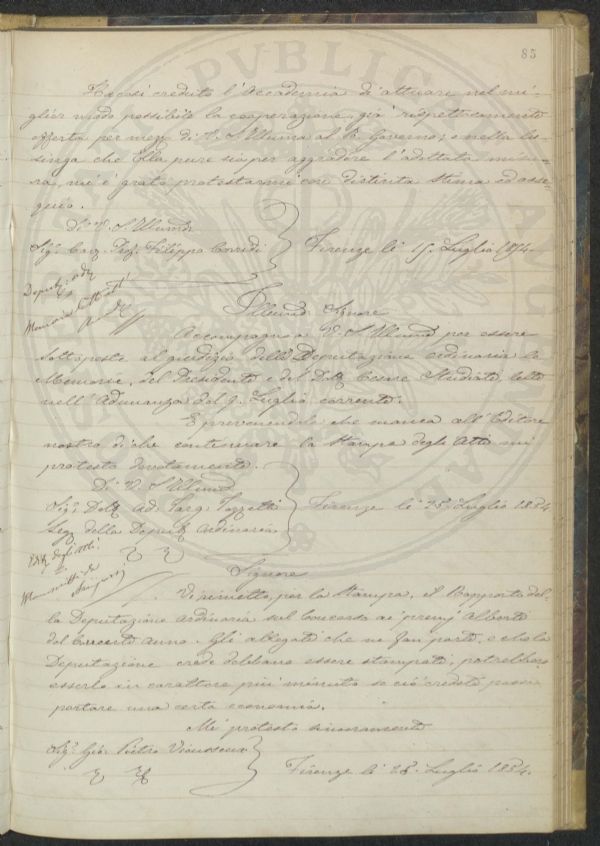 85
Ha così creduto l'Accademia di attuare nel mi-
glior modo possibile la cooperazione, già rispettosamente
offerta per mezzo di V. S. Illuma al R. Governo; e nella lu-
singa che Ella pure sia per aggradire l'adottata misu-
ra, mi è grato protestarmi con distinta stima ed osse-
quio.
Di V. S. Illuma
Sigr Cav. Prof. Filippo Corridi
Firenze lì 15. Luglio 1854
Deputaz. ord.
Memorie
Illumo Signore
Accompagno a V. S. Illuma per essere
sottoposte al giudizio della Deputazione ordinaria le
Memorie, del Presidente e del Dott. Cesare Studiati lette
nell'Adunanza del 9. Luglio corrente.
E prevenendola che manca all'Editore
nostro di che continuare la Stampa degli Atti mi
protesto devotamente.
Di V. S. Illuma
Sigr Dott. Ad. Targ. Tozzetti
Seg. della Deput. Ordinaria
Firenze lì 25. Luglio 1854
degli Atti.
Manoscritti da
Signore
Vi rimetto, per la Stampa, il Rapporto del-
la Deputazione ordinaria sul Concorso ai premj Alberti
del corrente anno. Gli allegati che ne fan parte, e che la
Deputazione crede debbano essere stampati, potrebbero
esserlo in carattere più minuto se ciò credete possa
portare una certa economia.
Mi protesto sinceramente
Sigr Gio. Pietro Vieusseux
Firenze lì 28. Luglio 1854.